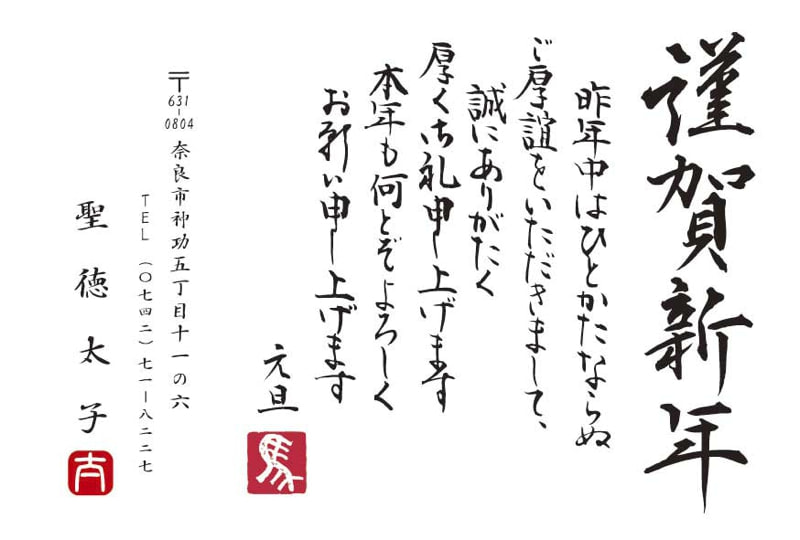 謹賀新年
昨年中はひとかたならぬ
ご厚誼をいただきまして、
誠にありがたく
厚く御礼申し上げます
本年も何とぞよろしく
お願い申し上げます
元旦
馬
〒631-0804 奈良市神功五丁目十一の六
TEL(〇七四二)七一―八二二七
聖徳太子
太